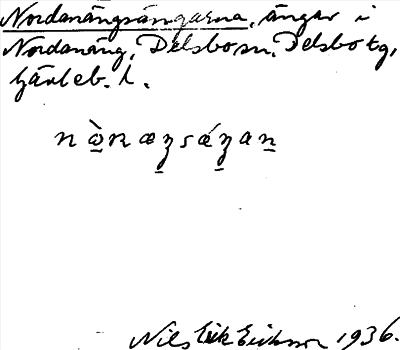 Nordanängsängarna, ängar i
Nordanäng, Delsbo sn, Delsbo tg,
Gävleb. l.
nò̱næʒ̱sǽʒ̱aṉ
Nils Erik Eriksson 1936.